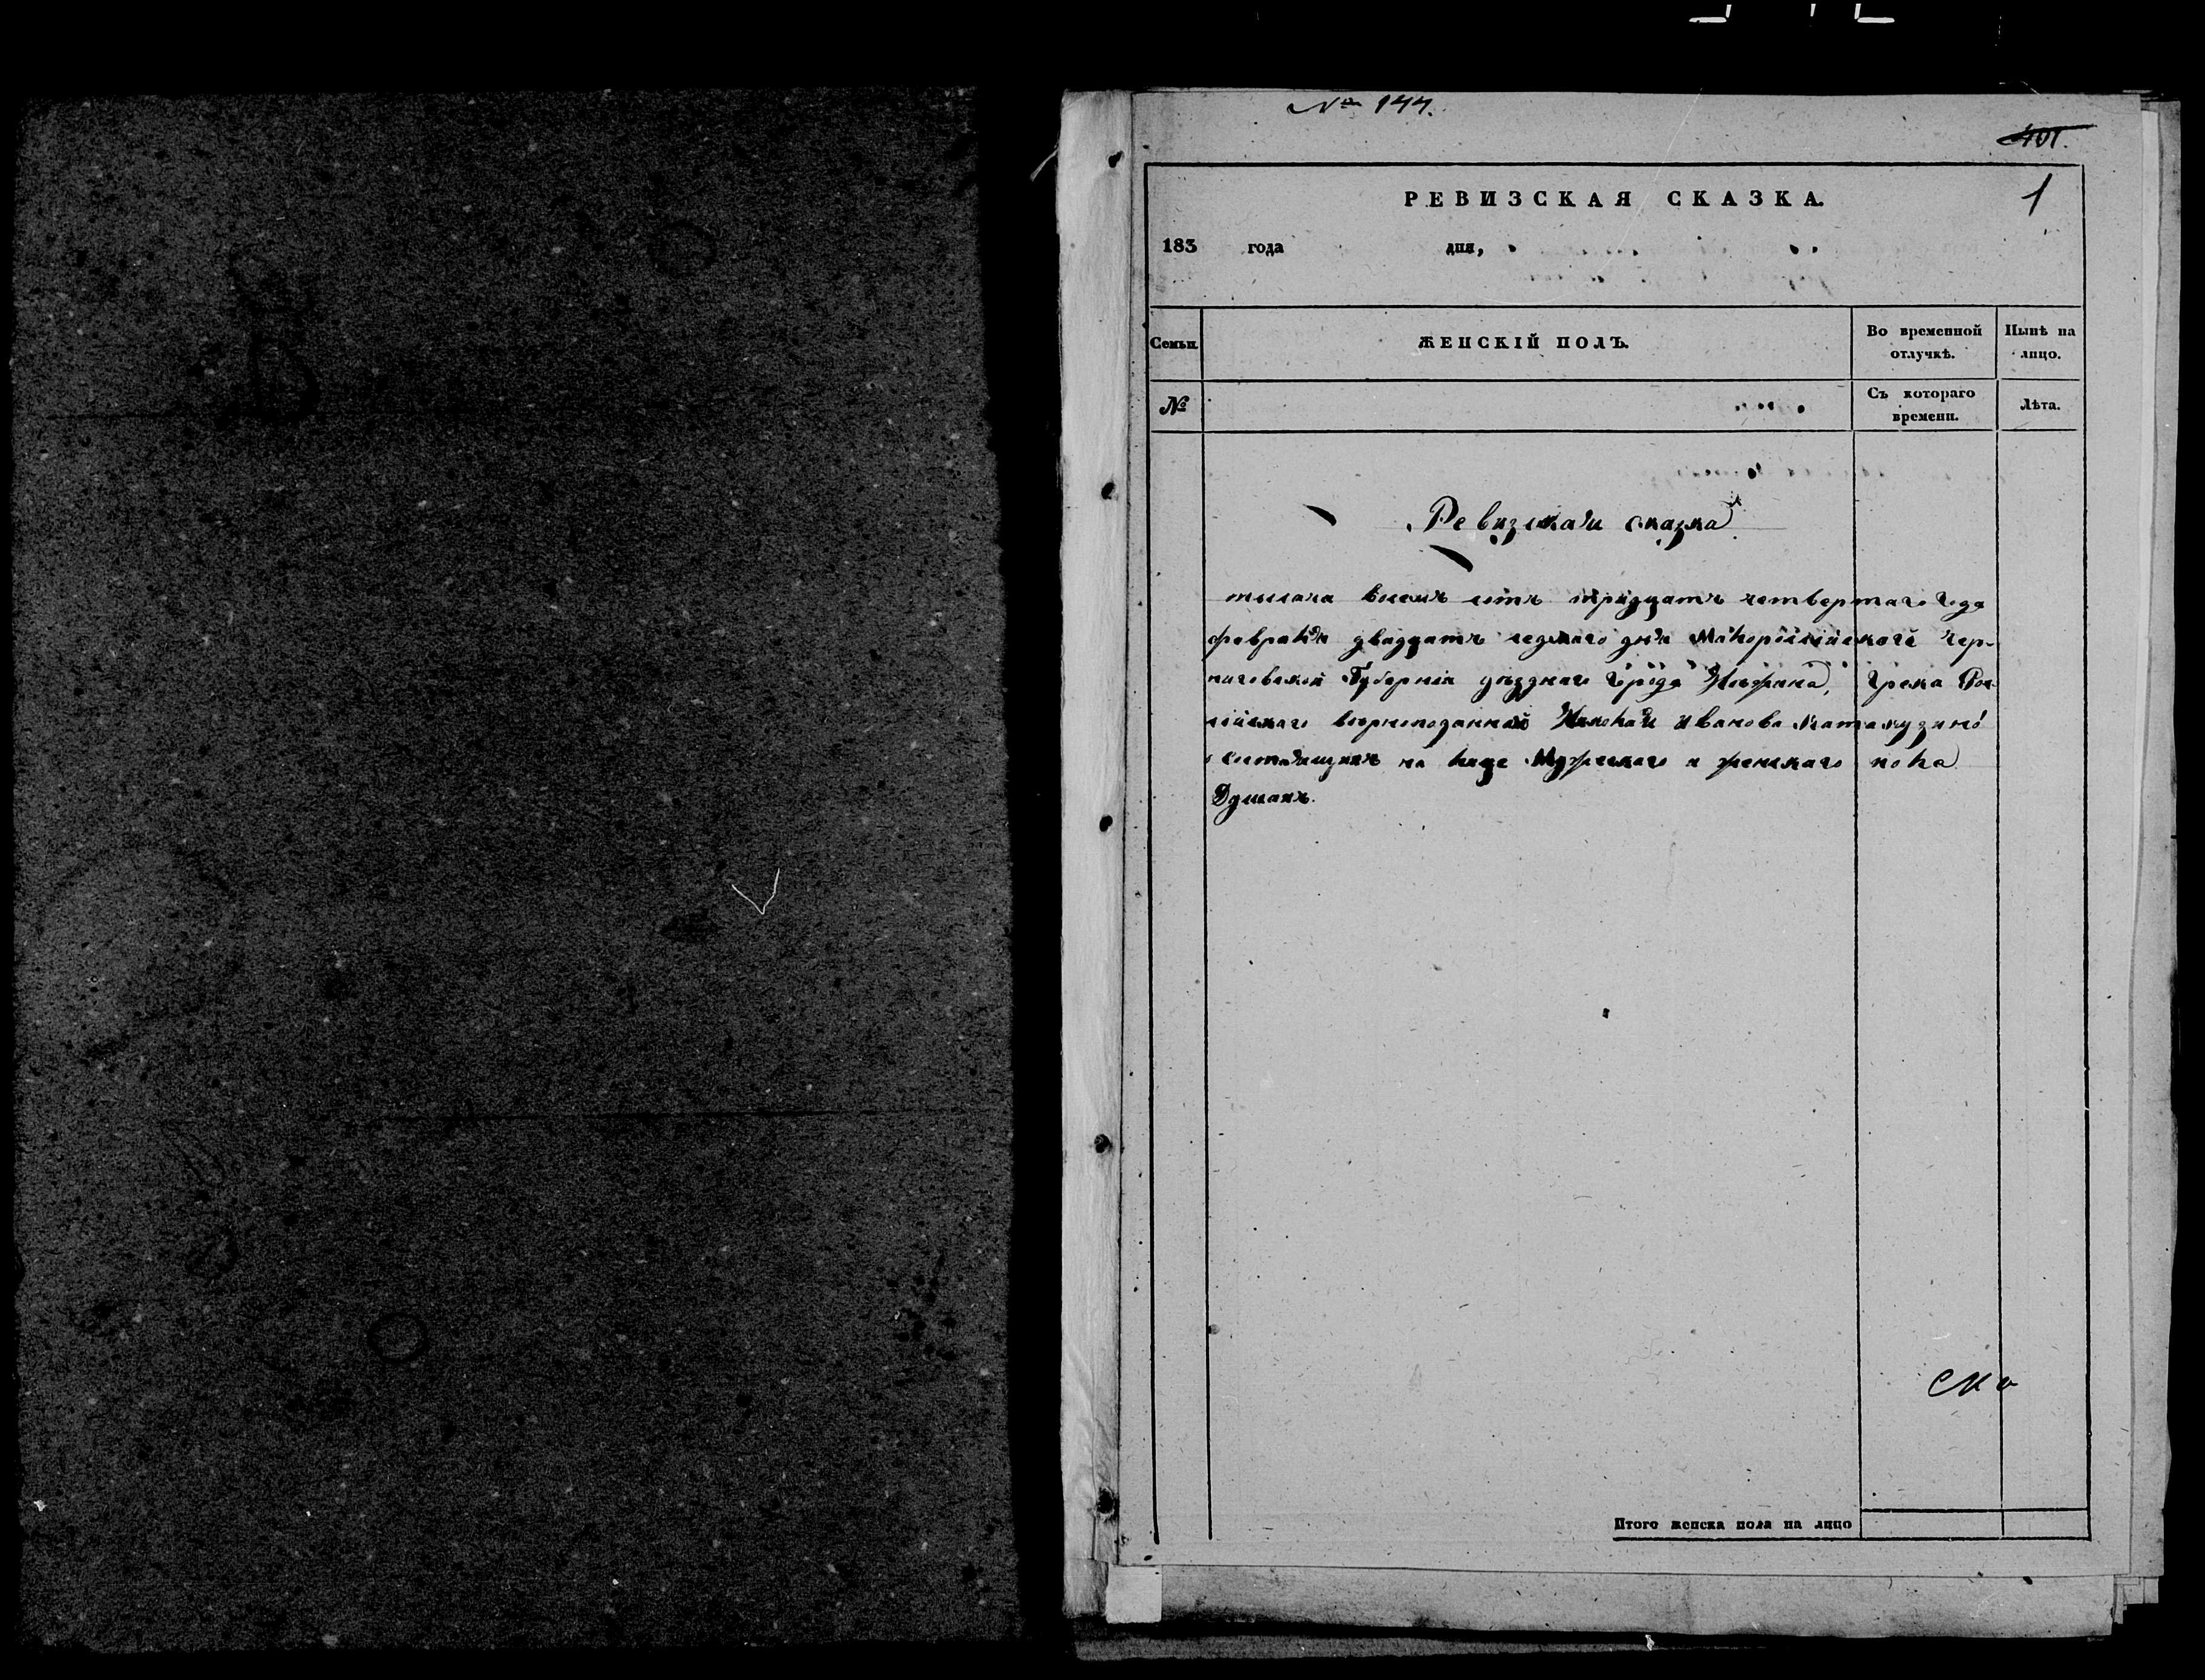 № 144.
401.
1
РЕВИЗСКАЯ СКАЗКА.
183 года дня,
Семьи. ЖЕНСКІЙ ПОЛЪ. Во временной отлучкѣ. Нынѣ на лицо.
№ Съ котораго времени. Лѣта.
Ревизская сказка
тысяча восемь сотъ тридцать четвертаго года
февраля двадцать седмаго дня Малороссійской Чер-
ниговской Губерніи уѣзднаго города Нѣжина, Грека Рос-
сійскаго вѣрноподаннаго Николая Иванова
о состоящихъ на лице Мужескаго и женскаго пола
Душахъ.
Итого женска пола на лицо